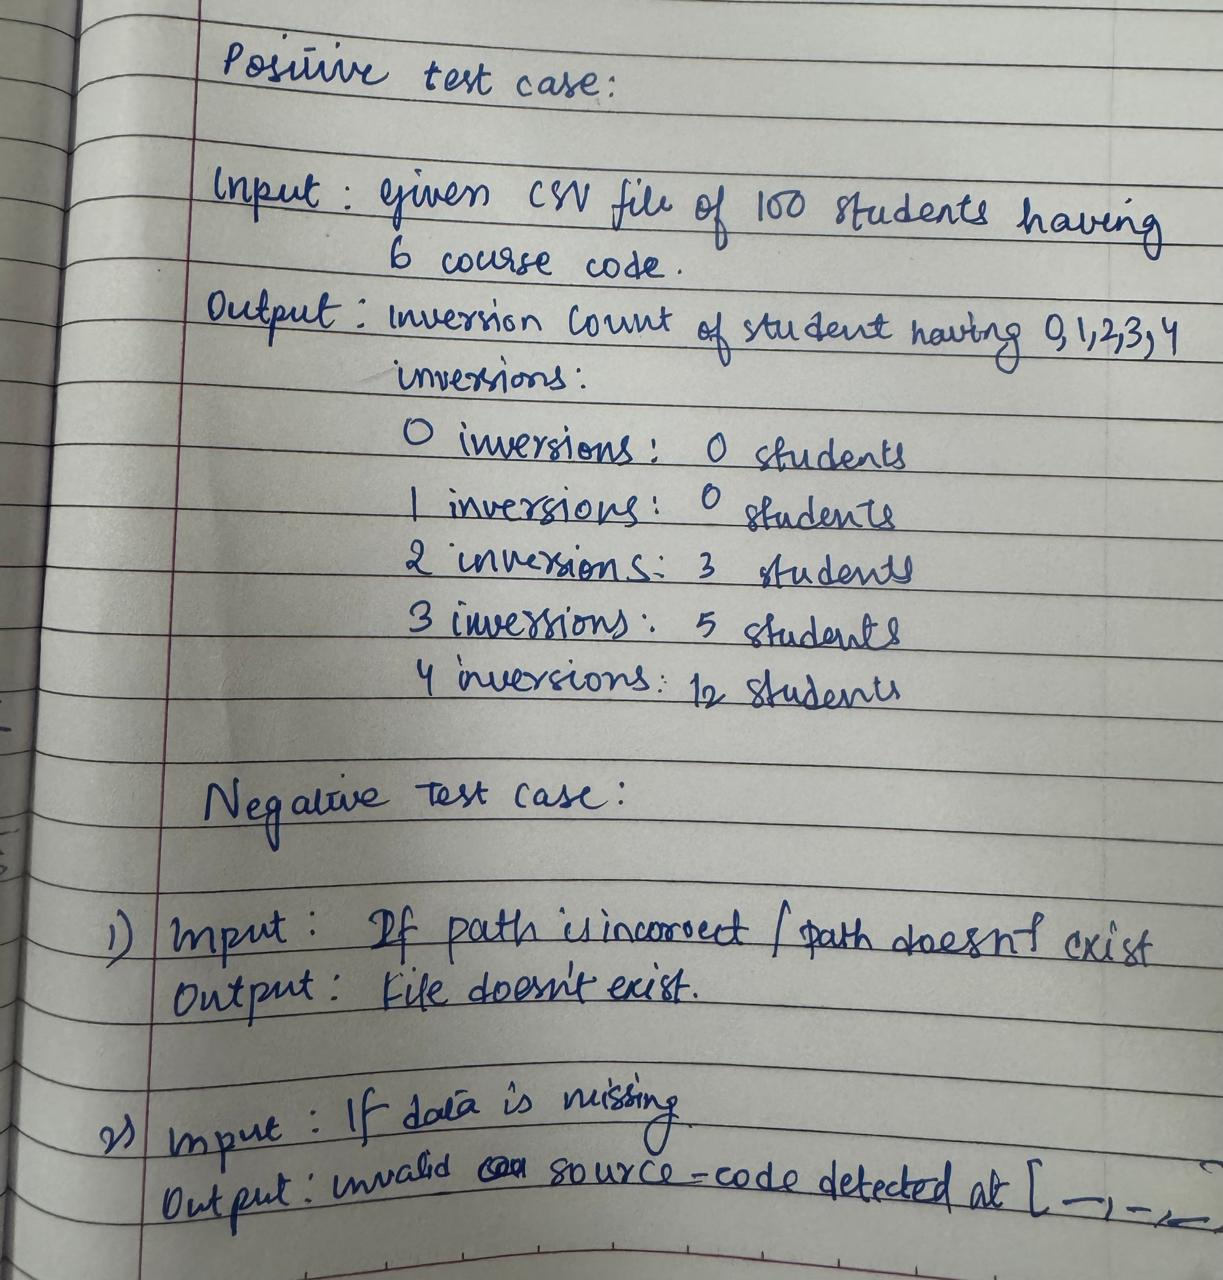 Positive test case:
Input : given CSV file of 100 students having
6 course code.
Output : inversion count of student having 0,1,2,3,4
inversions:
0 inversions: 0 students
1 inversions: 0 students
2 inversions: 3 students
3 inversions: 5 students
4 inversions: 12 students
Negative test case:
1) Input : If path is incorrect / path doesn't exist
Output : File doesn't exist.
2) Input : If data is missing
Output : invalid source-code detected at [ —, -, —